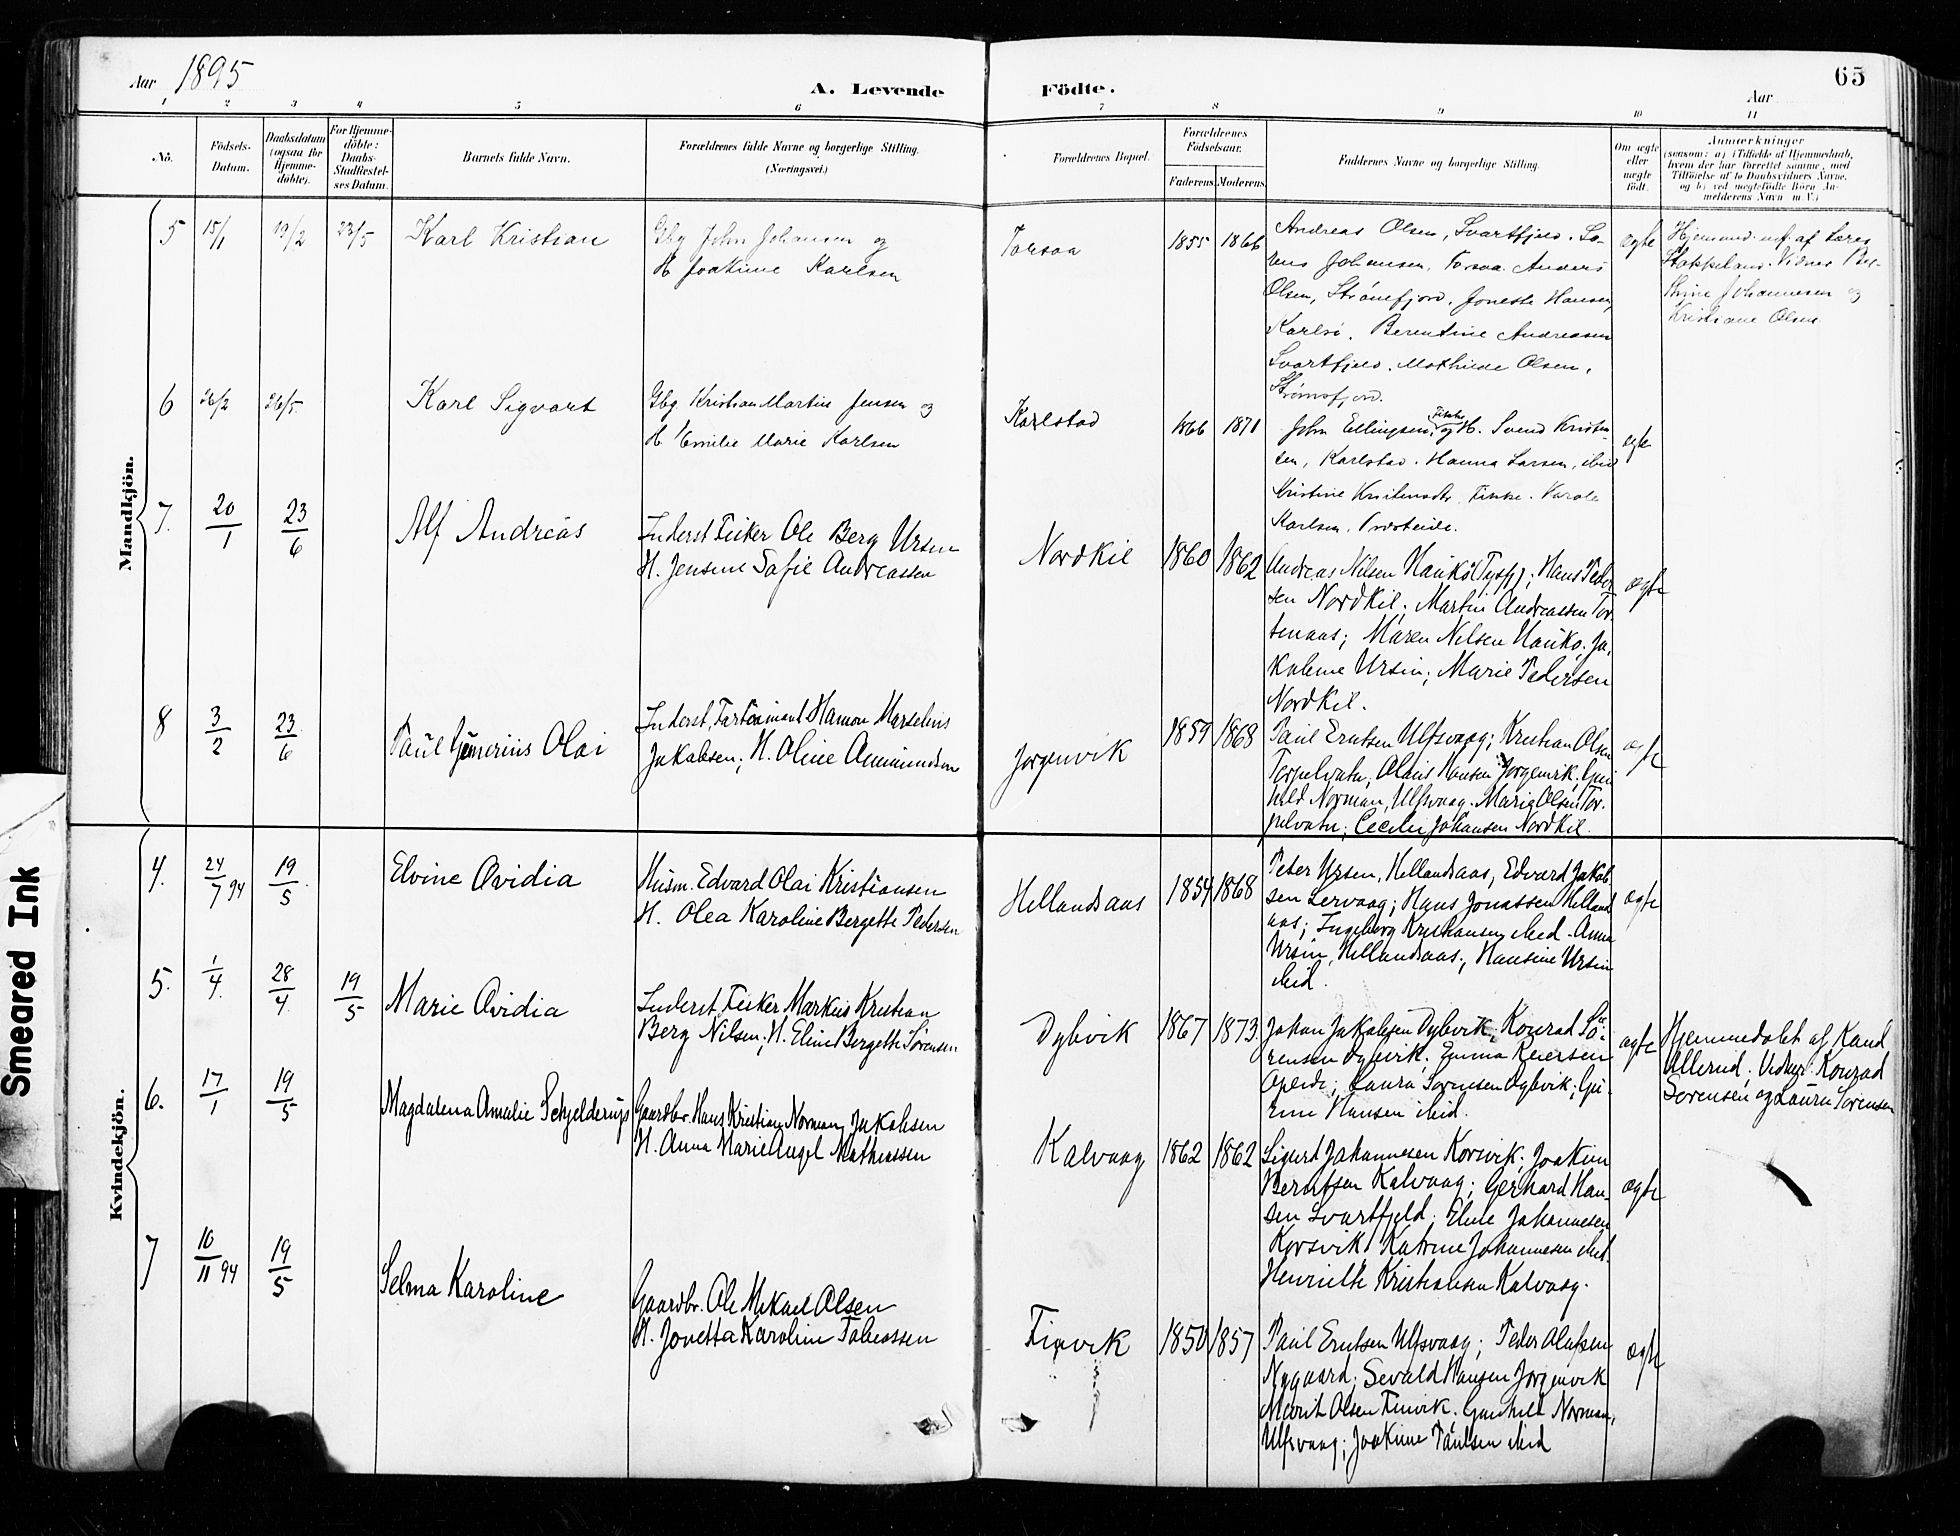 Aar 1895
A. Levende Födte.
65
Aar
1 2 3 4 5 6 7 8 9 10 11
No.
Födsels-Datum.
Daabsdatum (ogsaa for Hjemme-döbte).
For Hjemme-döbte: Daabs-Stadfæstel-ses Datum.
Barnets fulde Navn.
Forældrenes fulde Navne og borgerlige Stilling. (Næringsvei.)
Forældrenes Bopæl.
Forældrenes Födselsaar.
Faderens. Moderens.
Faddernes Navne og borgerlige Stilling.
Om ægte eller uægte födt.
Anmærkninger
(saasom: a) i Tilfælde af Hjemmedaab,
hvem der har forrettet samme, med
Tilföielse af to Daabsvidners Navne,
og b) ved uægtefödte Börn An-
melderens Navn m. V.)
Mandkjön.
5 15/1 19/2 23/5 Karl Kristian
Gbg John Johansen og
H Joakime Karlsen
Korsaa 1855 1866
Andreas Olsen, Svartfjeld. So-
rens Johansen, Korsaa. Anders
Olsen, Strömefjord. Joneste Hansen,
Karlsö. Berentine Andreasen
Svartfjeld. Mathilde Olsen,
Strömsfjord.
ægte
Hjemmed. utf. af Lærer
Stokkeland. Vidner Ber-
thine Johannesen og
Kristiane Olsen
6 26/2 26/5 Karl Sigvart
Gbg. Kristian Martin Jensen og
H. Emilie Marie Karlsen
Karlstad 1866 1871
John Ellingsen, Finke og H. Svend Kristen-
sen, Karlstad. Hanna Larsen, ibid
Kristine Knutsdatr Finke. Karole
Karlsen, Presteide.
ægte
7. 20/1 23/6 Alf Andreas
Inderst Fisker Ole Berg Ursin
H. Jensine Sofie Andreassen
Nordkil 1860 1862
Andreas Nilsen Haukö (Tysfj); Hans Peder-
sen Nordkil; Martin Andreassen Tor-
stenaas; Maren Nilsen Haukö; Ja-
kobine Ursin; Marie Pedersen
Nordkil.
ægte
8 3/2 23/6 Paul Gunerius Olai
Inderst, Hamon Marselius
Jakobsen; H. Oline Ammundsen
Jorgenvik 1859 1868
Paul Erntsen Ulfsvaag; Kristian Olsen
Torpelvatn; Olaus Hansen Jorgenvik; Gun
hild Norman, Ulfsvaag. Marie Olsen Tor-
pelvatn; Cecilie Johansen Nordkil.
ægte
Kvindekjön.
4. 24/7 94 19/5 Elvine Ovidia
Husm. Edvard Olai Kristiansen
H. Olea Karoline Bergette Pedersen
Hellandsaas 1854 1868
Peter Ursin, Hellandsaas, Edvard Jakob
sen Lervaag; Hans Jonassen Helland
aas; Ingeborg Kristiansen ibid. Anna
Ursin, Hellandsaas; Hansine Ursin
ibid.
ægte
5. 1/4 28/4 19/5 Marie Ovidia
Inderst, Fisker Markus Kristian
Berg Nilsen; H. Eline Bergette Sörensen
Dybvik 1867 1873
Johan Jakobsen Dybvik; Konrad Sö-
rensen Dybvik; Emma Reiersen
Opeide; Laura Sorensen Dybvik; Gu-
rine Hansen ibid.
ægte
Hjemmedobt af Kand
Ullerud; Vidner Konrad
Sorensen og Laura Sorensen
6. 17/1 19/5 Magdalena Amalie Schjelderups
Gaardbr. Hans Kristian Norman Jakobsen
H. Anna Marie Angel Mathiassen
Kalvaag 1862 1862
Sigurd Johannesen Korsvik; Joakim
Berntsen Kalvaag; Gerhard Han-
sen Svartfjeld; Eline Johannesen
Korsvik; Katrine Johannesen ibid.
Henriette Kristiansen Kalvaag.
ægte
7 10/11 94 19/5 Selma Karoline
Gaardbr. Ole Mikael Olsen
H. Jonetta Karoline Tobiassen
Finvik 1850 1857
Paul Erntsen Ulfsvaag; Peder Olufsen
Nygaard; Sevald Hansen Jorgenvik
Marit Olsen Finvik; Gunhild Norman,
Ulfsvaag; Joakime Paulsen ibid
ægte
Smeared Ink